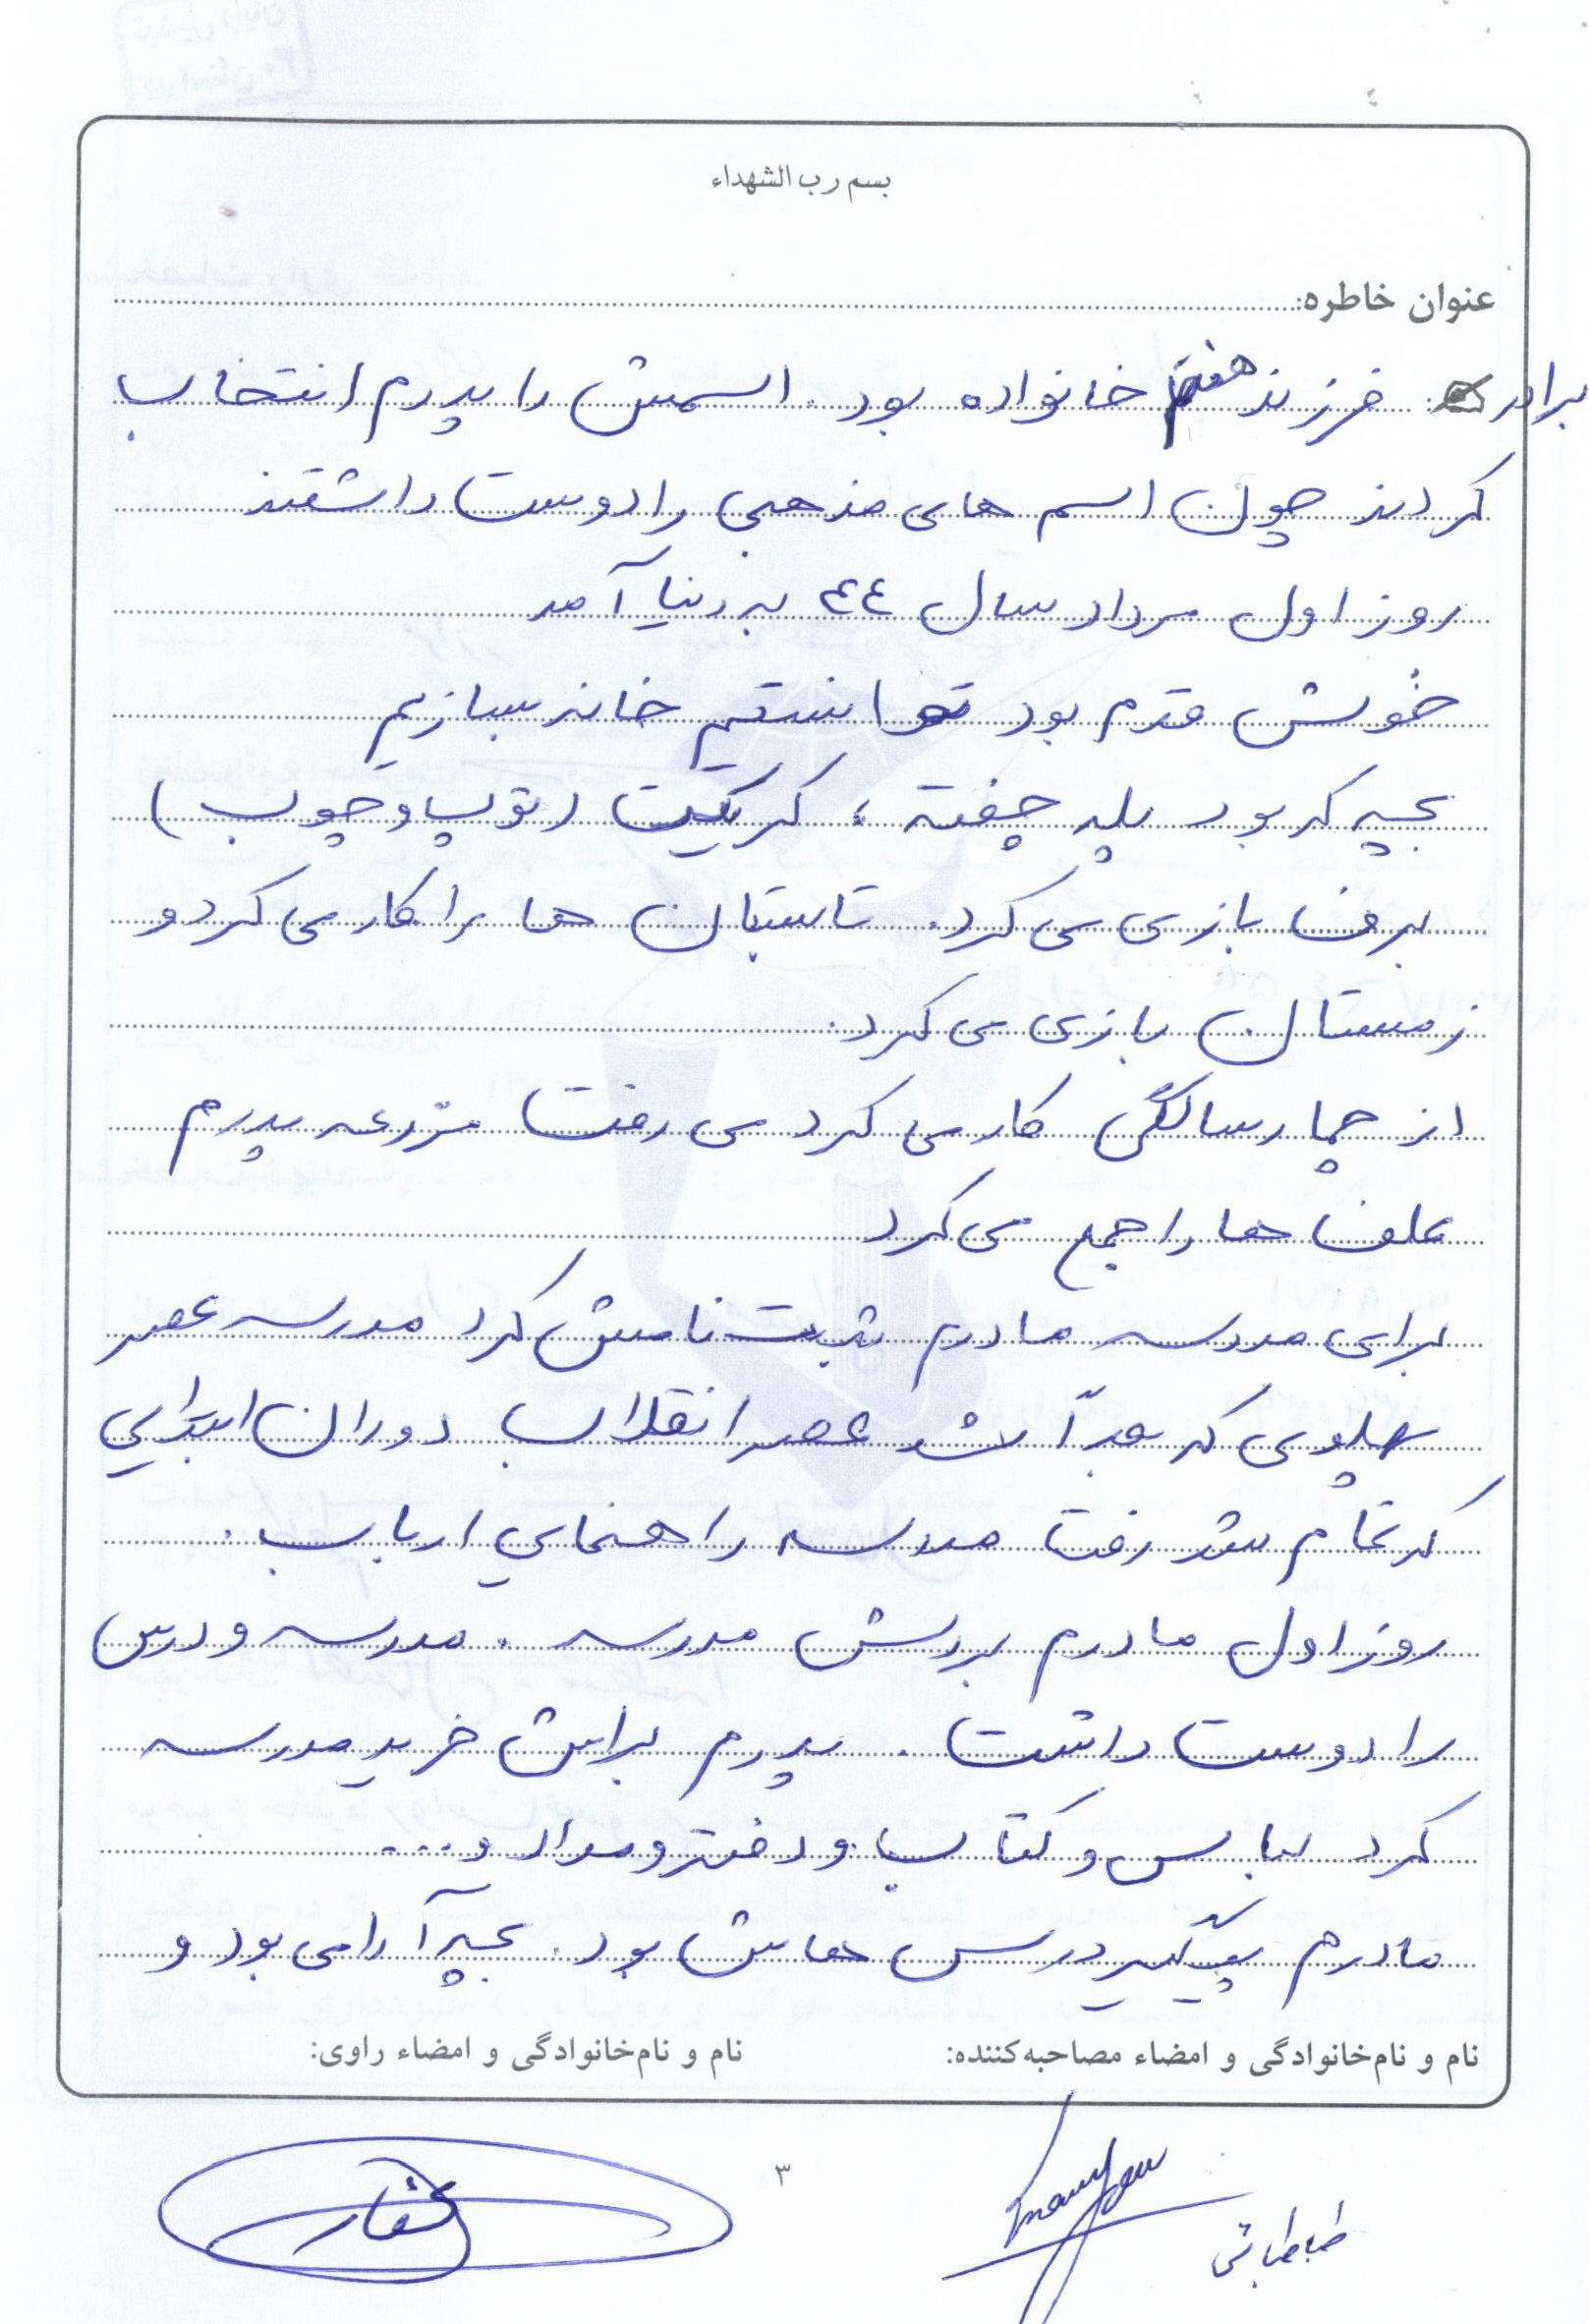 بسم رب الشهداء
عنوان خاطره:
برادر فرزند هفتم خانواده بود. اسمش را پدرم انتخاب
کردند چون اسم های مذهبی را دوست داشتند
روز اول مرداد سال ٤٤ به دنیا آمد
خوش قدم بود توانستیم خانه بسازیم
بچه که بود پله چفته ، کریکیت (توپ و چوب)
برف بازی می کرد. تابستان ها را کار می کرد و
زمستان بازی می کرد.
از چهارسالگی کار می کرد می رفت مزرعه پدرم
علف ها را جمع می کرد
برای مدرسه مادرم ثبت نامش کرد مدرسه عصر
پهلوی که بعداً شد عصر انقلاب دوران ابتدایی
که تمام شد رفت مدرسه راهنمایی ارباب.
روز اول مادرم بردش مدرسه . مدرسه و درس
را دوست داشت . پدرم برایش خرید مدرسه
کرد لباس و کتاب و دفتر و مداد و ...
مادرم پیگیر درس هایش بود. بچه آرامی بود و
نام و نام‌خانوادگی و امضاء مصاحبه‌کننده:
نام و نام‌خانوادگی و امضاء راوی:
طباطبائی
٣